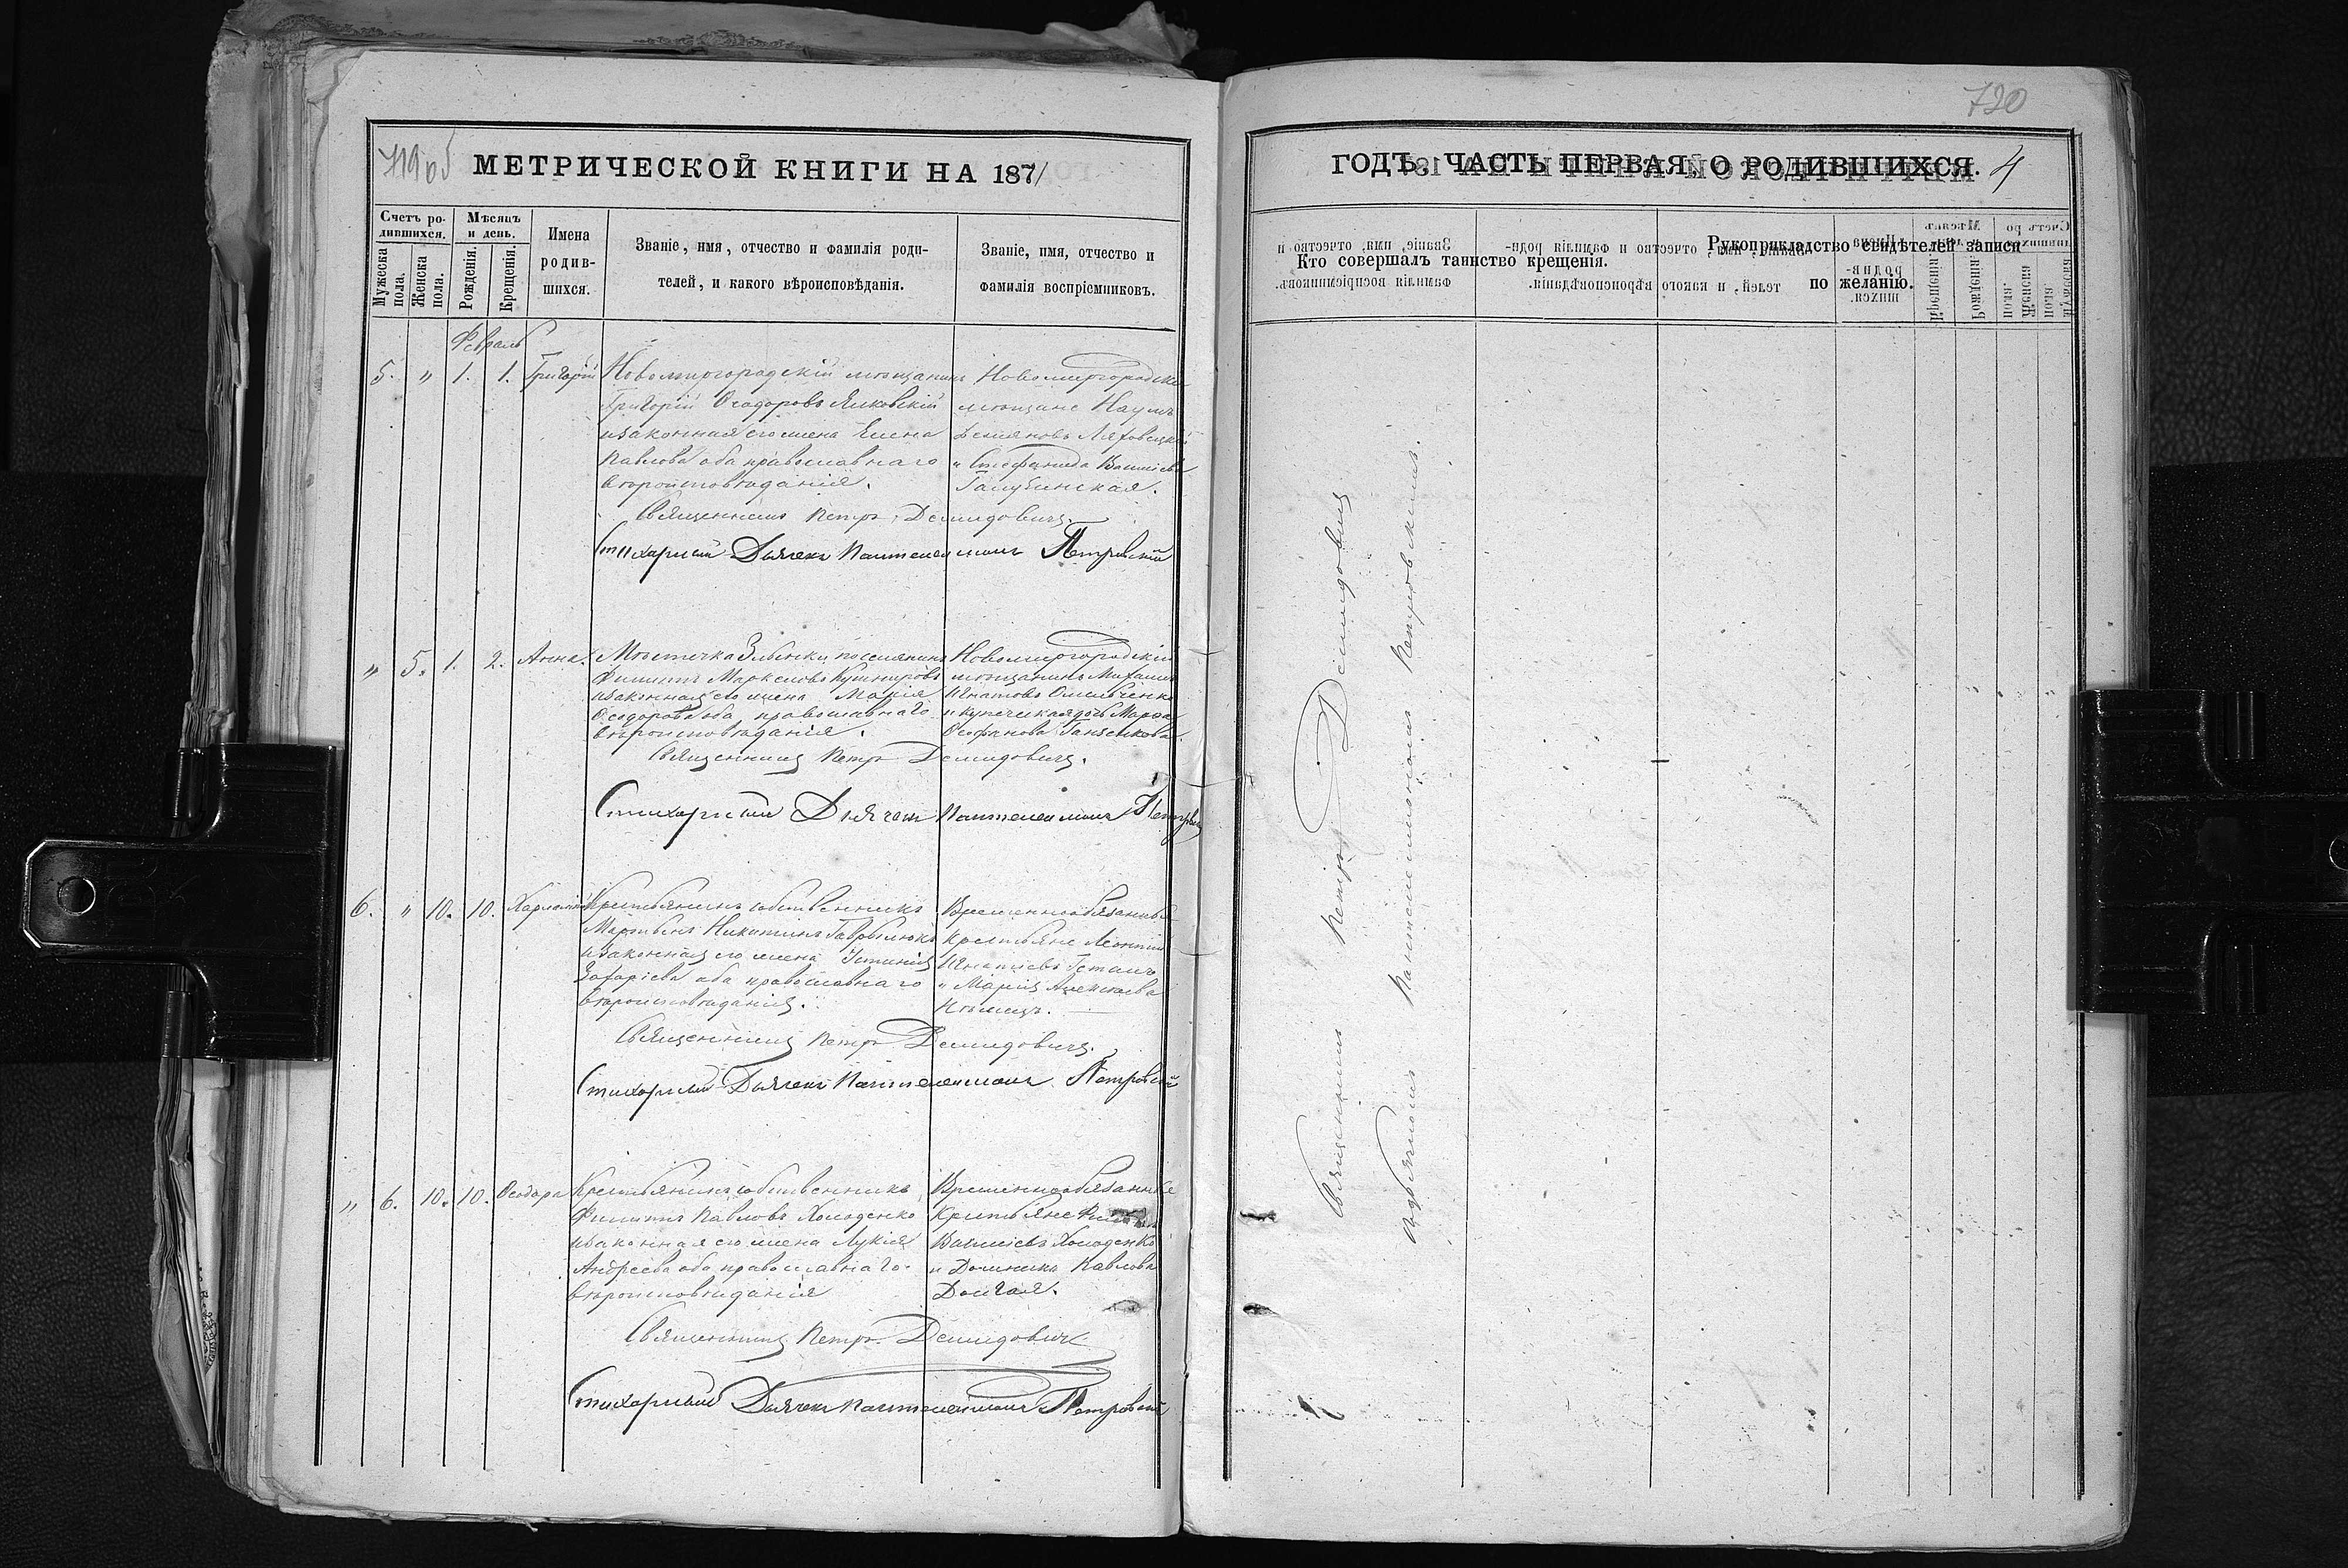 720
719об
МЕТРИЧЕСКОЙ КНИГИ НА 1871
ГОДЪ. ЧАСТЬ ПЕРВАЯ, О РОДИВШИХСЯ. 4
Счетъ ро-
дившихся.
Мужеска
пола.
Женска
пола.
Мѣсяцъ
и день.
Рожденія.
Крещенія.
Имена
родив-
шихся.
Званіе, имя, отчество и фамилія роди-
телей, и какого вѣроисповѣданія.
Званіе, имя, отчество и
фамилія воспріемниковъ.
Кто совершалъ таинство крещенія.
Рукоприкладство свидѣтелей записи
по желанію.
Февраль
5. " 1. 1. Григорій
Новомиргородскій мѣщанинъ
Григорій Ѳеодоровъ Янковскій
и законная его жена Елена
Павлова оба православнаго
вѣроисповѣданія.
Новомиргородскіе
мѣщане Наумъ
Демяновъ
и Стефанида Василіева
Священникъ Петръ Демидовичъ.
Стихарный Дьячекъ Пантелеимонъ Петровскій
" 5. 1. 2. Анна.
Мѣстечка Злынки поселянинъ
Филиппъ Маркеловъ Кушнировъ
и законная его жена Марія
Ѳеодорова оба православнаго
вѣроисповѣданія.
Новомиргородскій
мѣщанинъ Михаилъ
Игнатовъ Омельченко
и купеческая дочь Марѳа
Ѳеофанова
Священникъ Петръ Демидовичъ.
Стихарный Дьячекъ Пантелеимонъ Петровскій
6. " 10. 10. Харлампій
Крестьянинъ собственникъ
Мартынъ Никитинъ Гаврылюкъ
и законная его жена Устинія
Захаріева оба православнаго
вѣроисповѣданія.
Временнообязанные
крестьяне Леонтій
Игнатіевъ
и Марія Алексѣева
Нѣмецъ.
Священникъ Петръ Демидовичъ.
Стихарный Дьячекъ Пантелеимонъ Петровскій
" 6. 10. 10. Ѳеодора
Крестьянинъ собственникъ
Филиппъ Павловъ Холоденко
и законная его жена Лукія
Андреева оба православнаго
вѣроисповѣданія
Временнообязанные
крестьяне
Василіевъ Холоденко
и Домникія Павлова
Долгая.
Священникъ Петръ Демидовичъ
Стихарный Дьячекъ Пантелеимонъ Петровскій
Священникъ Петръ Демидовичъ
съ дьячкомъ Пантелеимономъ Петровскимъ.